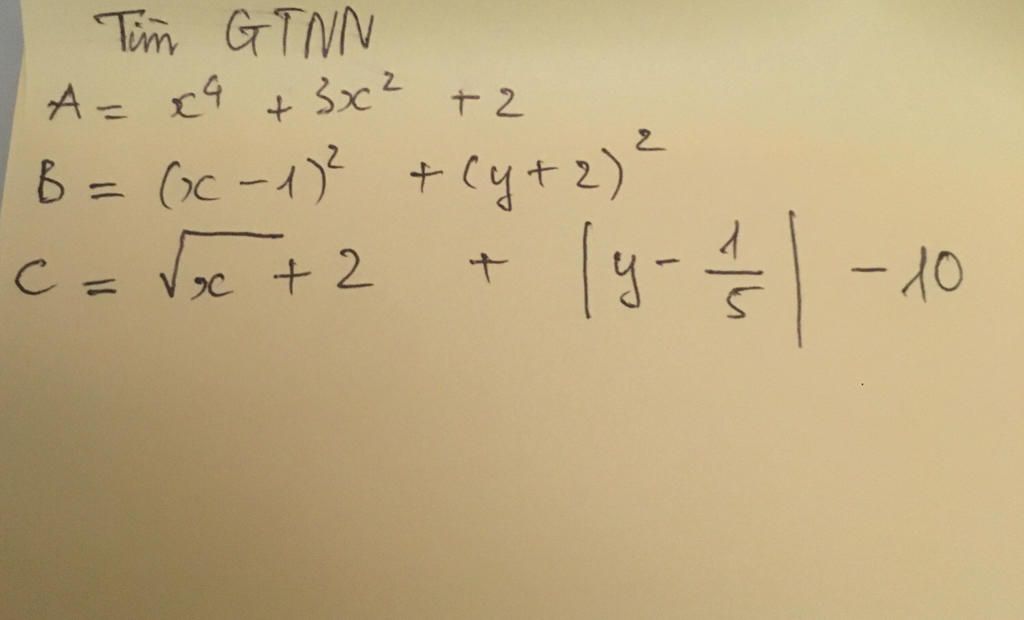 Tìm GTNN
A = x⁴ + 3x² + 2
B = (x - 1)² + (y + 2)²
C = √x + 2 + |y - 1/5| - 10